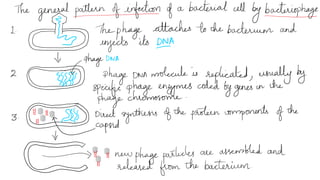 The general pattern of infection of a bacterial cell by bacteriophage
1.
The phage attaches to the bacterium and
injects its DNA
phage DNA
2
phage DNA molecule is replicated, usually by
specific phage enzymes coded by genes in the
phage chromosome.
3
Direct synthesis of the protein components of the
capsid
new phage particles are assembled and
released from the bacterium